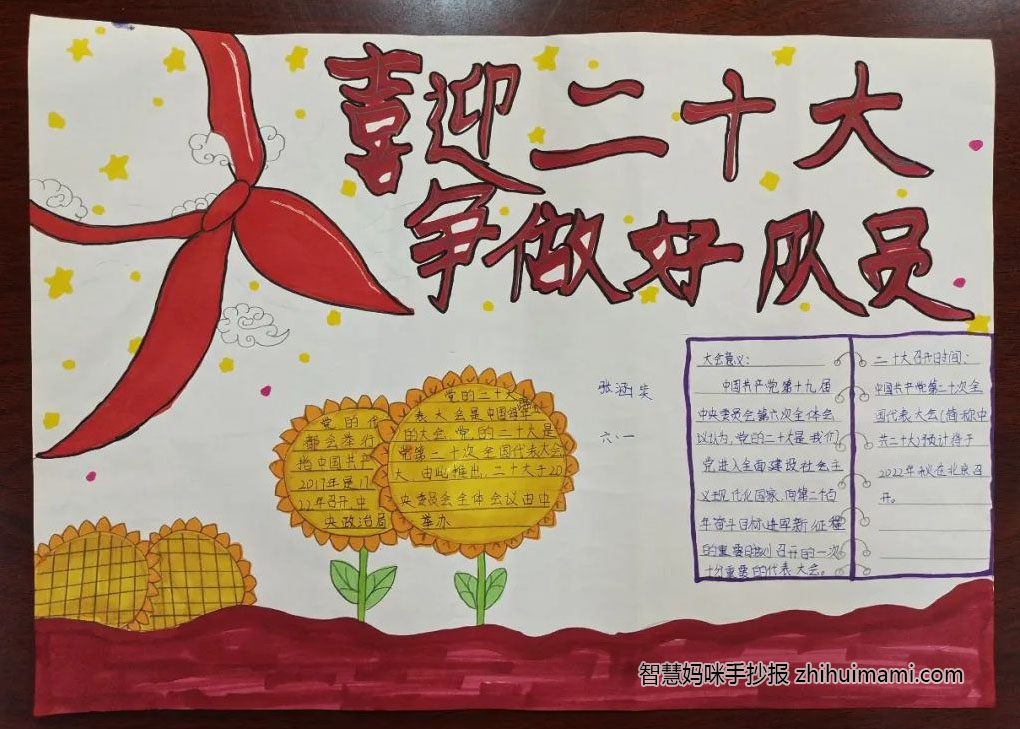 喜迎二十大
争做好队员
张涵
六、一
党的代
都会举行
指中国共产
2017年是1
22年召开,中
央政治局
党的二十大
表大会是中国
的大会,党的二十大是
第二十次全国代表大会
大,由此推出,二十大于20
央委员会全体会议由中
举办
大会意义:
中国共产党第十九届
中央委员会第六次全体会
议认为,党的二十大是我们
党进入全面建设社会主
义现代化国家、向第二个百
年奋斗目标进军新征程
的重要时刻召开的一次
十分重要的代表大会。
二十大召开时间:
中国共产党第二十次全
国代表大会(简称中
共二十大)预计将于
2022年秋在北京召
开。
智慧妈咪手抄报 zhihuimami.com